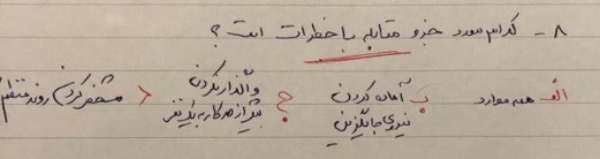 ۸- کدام مورد جزو مقابله با خطرات است؟
الف همه موارد
ب آماده کردن نیروی جایگزین
ج واگذار نکردن بیش از حد کار به یک نفر
د مشخص کردن روند منظم